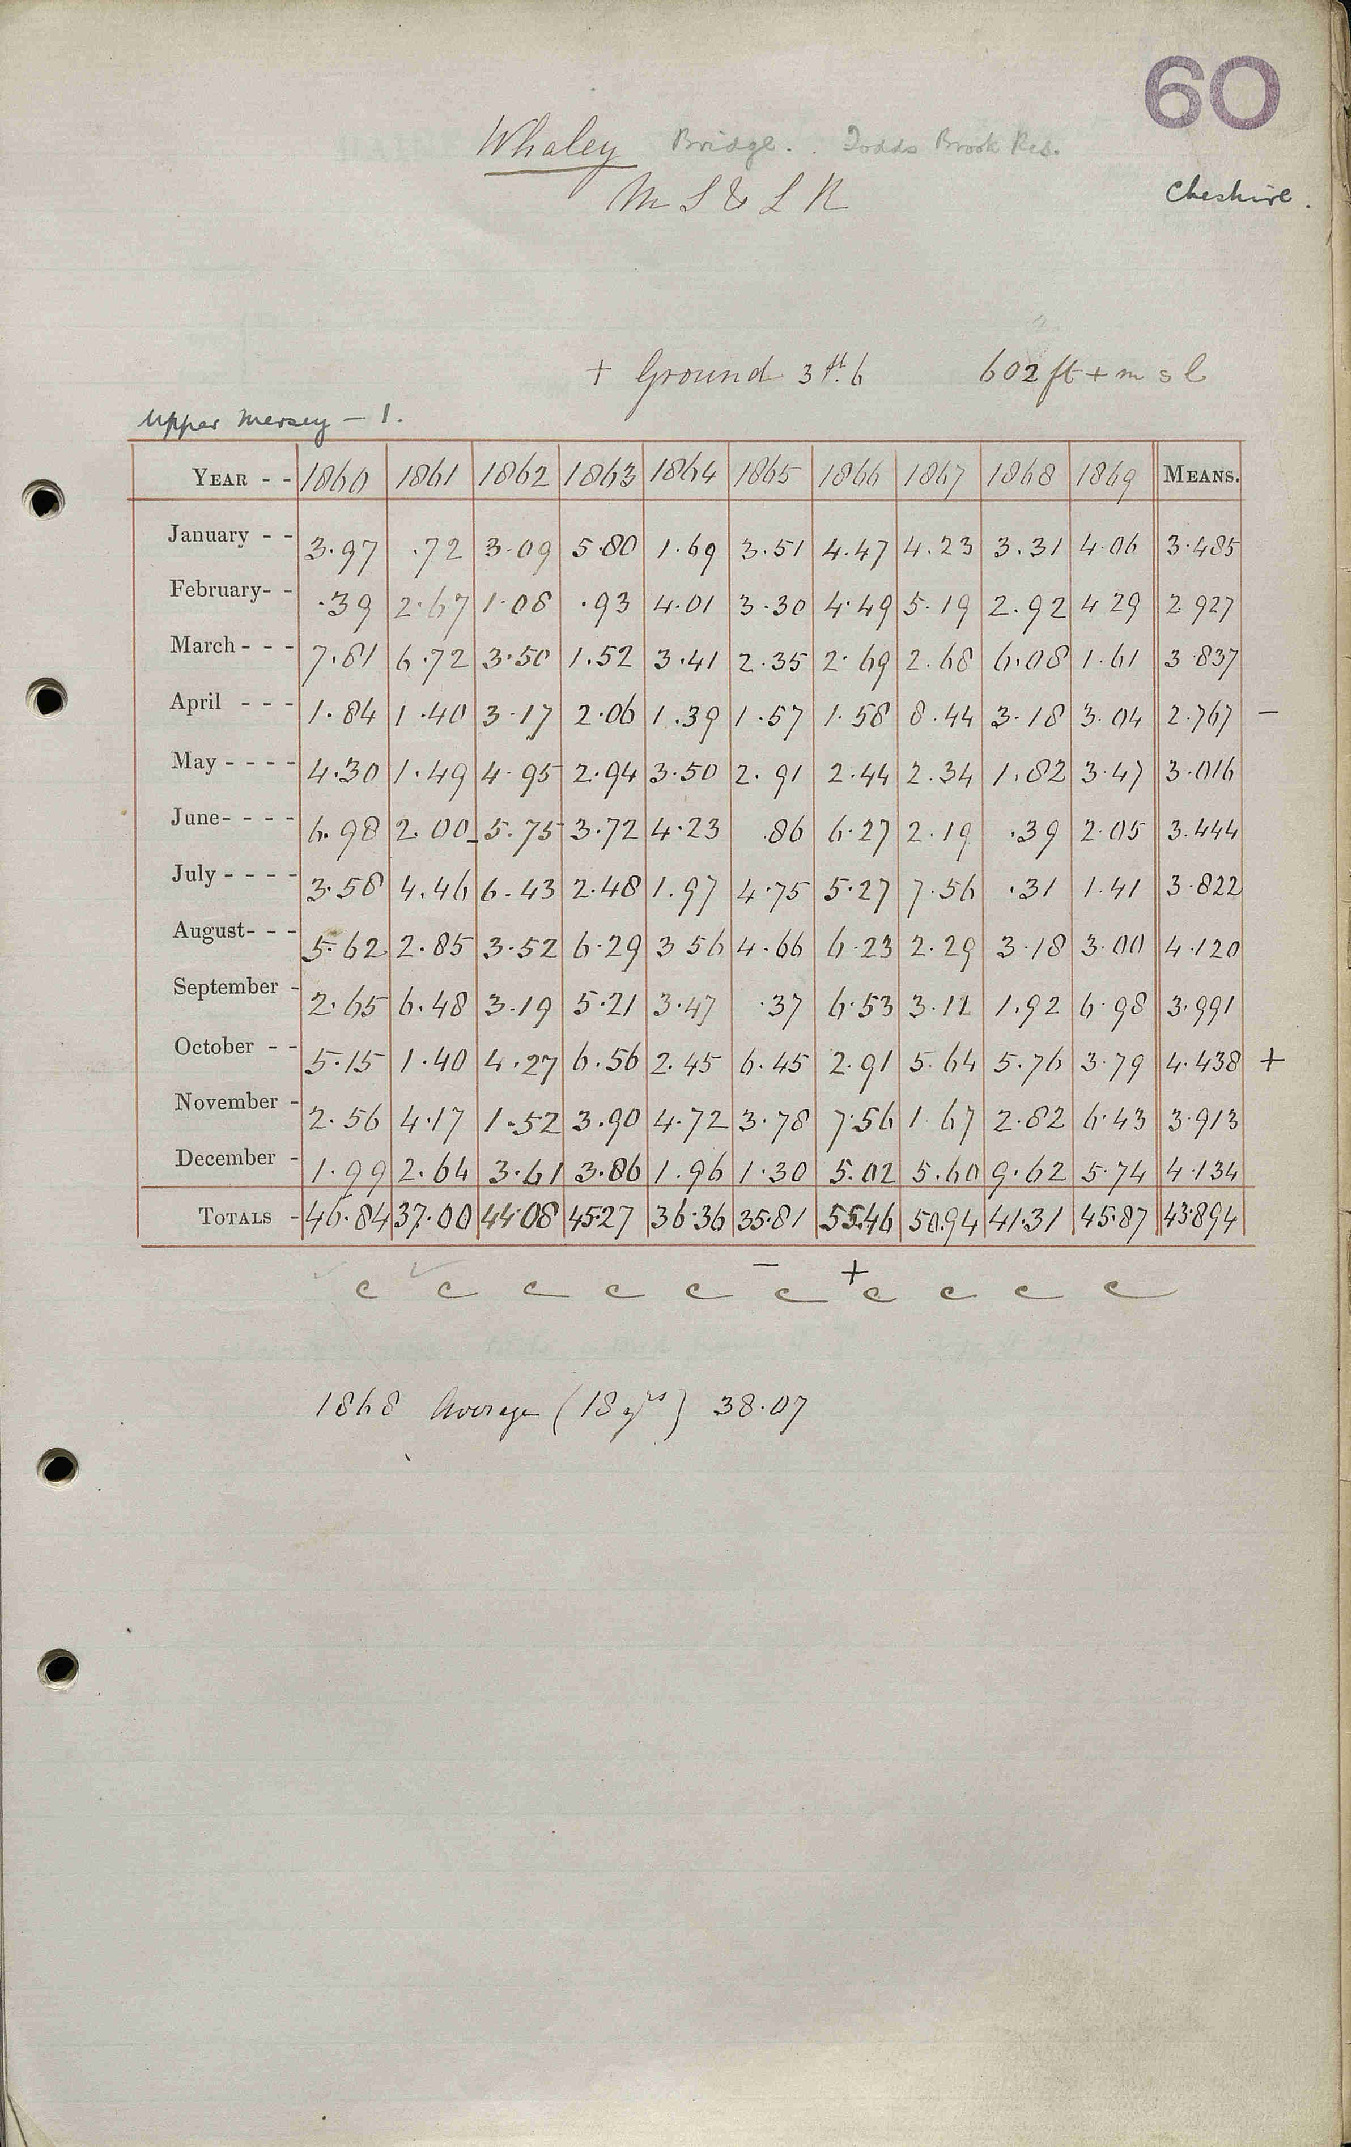 60
Whaley Bridge. Todds Brook Res.
M S & L R
Cheshire.
+ Ground 3 ft. 6 602 ft + m s l
Upper Mersey - 1.
YEAR - - 1860 1861 1862 1863 1864 1865 1866 1867 1868 1869 MEANS.
January - - 3.97 .72 3.09 5.80 1.69 3.51 4.47 4.23 3.31 4.06 3.485
February- - .39 2.67 1.08 .93 4.01 3.30 4.49 5.19 2.92 4.29 2.927
March - - - 7.81 6.72 3.50 1.52 3.41 2.35 2.69 2.68 6.08 1.61 3.837
April - - - 1.84 1.40 3.17 2.06 1.39 1.57 1.58 8.44 3.18 3.04 2.767 -
May - - - - 4.30 1.49 4.95 2.94 3.50 2.91 2.44 2.34 1.82 3.47 3.016
June- - - - 6.98 2.00 5.75 3.72 4.23 .86 6.27 2.19 .39 2.05 3.444
July - - - - 3.58 4.46 6.43 2.48 1.97 4.75 5.27 7.56 .31 1.41 3.822
August- - - 5.62 2.85 3.52 6.29 3.56 4.66 6.23 2.29 3.18 3.00 4.120
September - 2.65 6.48 3.19 5.21 3.47 .37 6.53 3.11 1.92 6.98 3.991
October - - 5.15 1.40 4.27 6.56 2.45 6.45 2.91 5.64 5.76 3.79 4.438 +
November - 2.56 4.17 1.52 3.90 4.72 3.78 7.56 1.67 2.82 6.43 3.913
December - 1.99 2.64 3.61 3.86 1.96 1.30 5.02 5.60 9.62 5.74 4.134
TOTALS - 46.84 37.00 44.08 45.27 36.36 35.81 55.46 50.94 41.31 45.87 43.894
- +
c c c c c c c c c c
1868 Average (18 yrs) 38.07